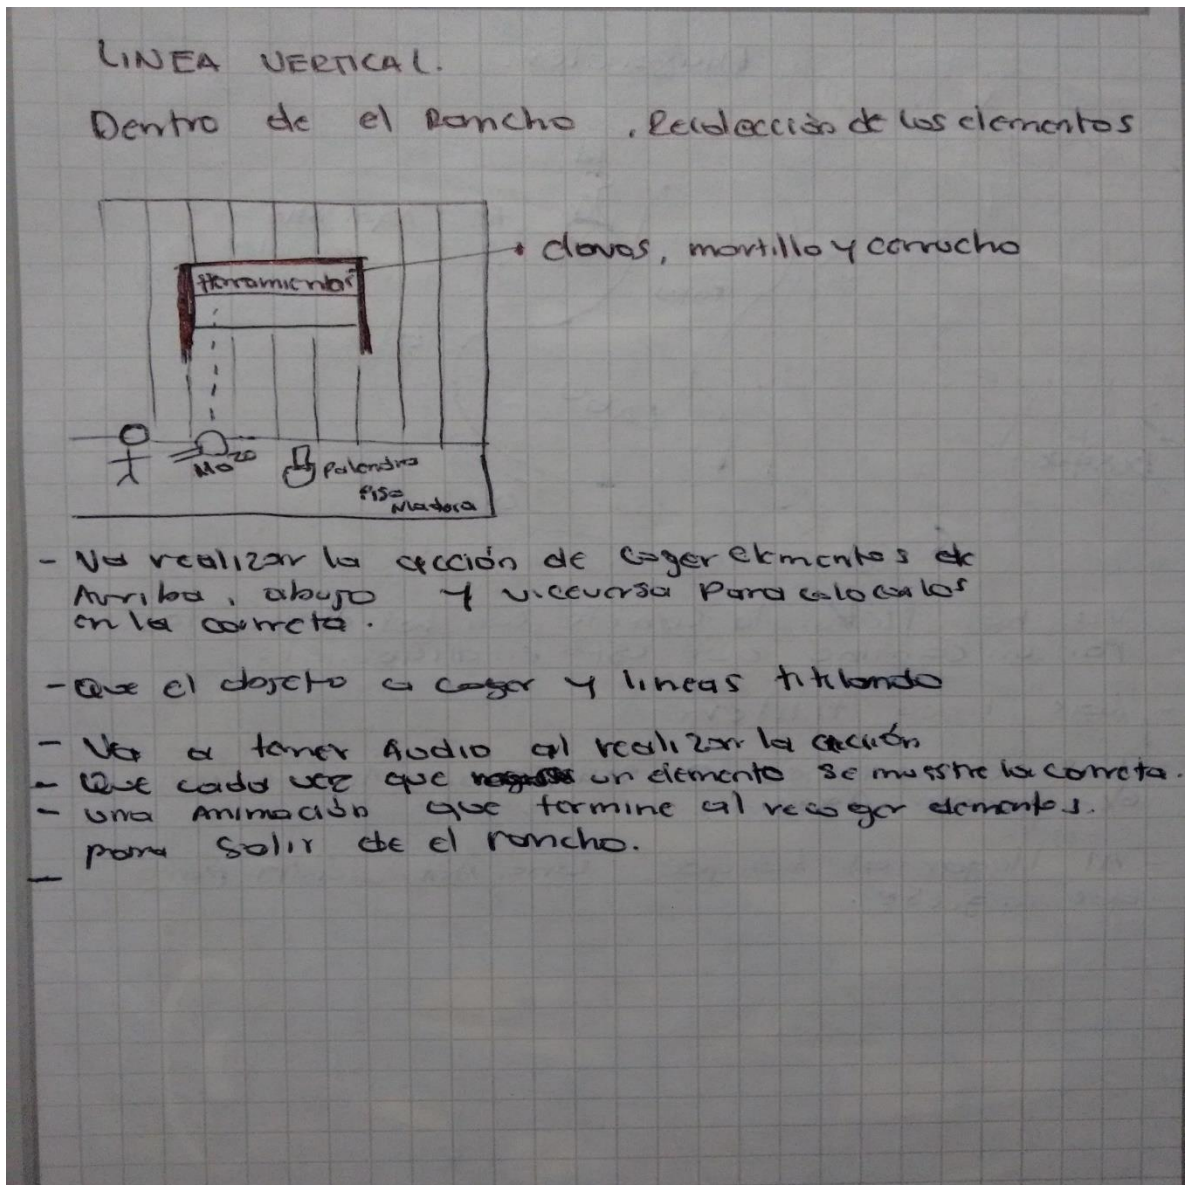 LINEA VERTICAL.
Dentro de el Rancho, Recolección de los elementos
clavos, martillo y serrucho
Herramientas
Palendra
Pisa
Madera
- Va realizar la acción de coger elementos de
Arriba, abajo y viceversa Para colocarlos
en la carreta.
- Que el objeto a coger y lineas titilando
- Va a tener Audio al realizar la acción
- Que cada vez que un elemento se muestre la carreta.
- una Animación que termine al recoger elementos.
para Salir de el rancho.
-